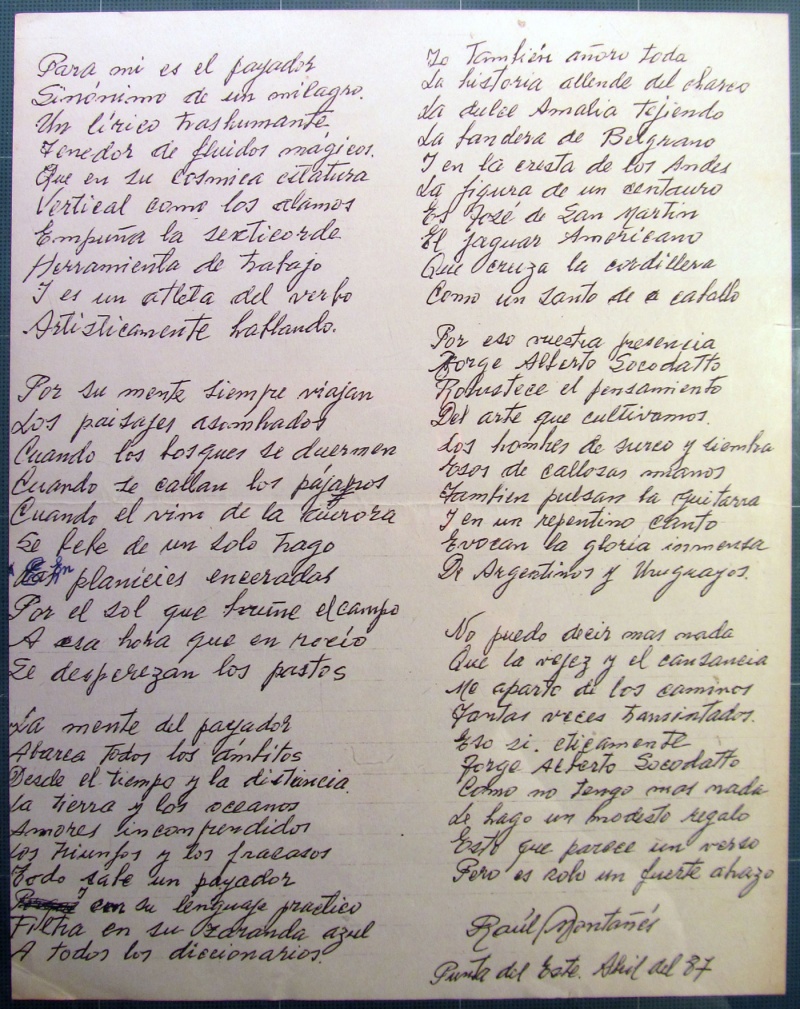 Para mi es el payador
Sinónimo de un milagro.
Un lírico trashumante
Tenedor de fluidos mágicos.
Que en su cosmica estatura
Vertical como los alamos
Empuña la sexticorde
Herramienta de trabajo
Y es un atleta del verbo
Artisticamente hablando.
Por su mente siempre viajan
Los paisajes asombrados
Cuando los bosques se duermen
Cuando se callan los pájaros
Cuando el vino de la aurora
Se bebe de un solo trago
En planicies enceradas
Por el sol que bruñe el campo
A esa hora que en rocío
Se desperezan los pastos
La mente del payador
Abarca todos los ámbitos
Desde el tiempo y la distancia
La tierra y los oceanos
Amores incomprendidos
Los triunfos y los fracasos
Todo sabe un payador
Y en su lenguaje practico
Filtra en su zaranda azul
A todos los diccionarios.
Yo También añoro toda
La historia allende del charco
La dulce Amalia Tejiendo
La bandera de Belgrano
Y en la cresta de los Andes
La figura de un centauro
Es José de San Martin
El jaguar Americano
Que cruza la cordillera
Como un santo de a caballo
Por eso vuestra presencia
Jorge Alberto Socodatto
Robustece el pensamiento
Del arte que cultivamos.
Los hombres de surco y siembra
Esos de callosas manos
Tambien pulsan la guitarra
Y en un repentino canto
Evocan la gloria inmensa
De Argentinos y Uruguayos.
No puedo decir mas nada
Que la vejez y el cansancia
Me aparto de los caminos
Tantas veces transintados.
Eso si. eticamente
Jorge Alberto Socodatto
Como no tengo mas nada
Le hago un modesto regalo
Este que parece un verso
Pero es solo un fuerte abrazo
Raúl Montañés
Punta del Este. Abril del 87